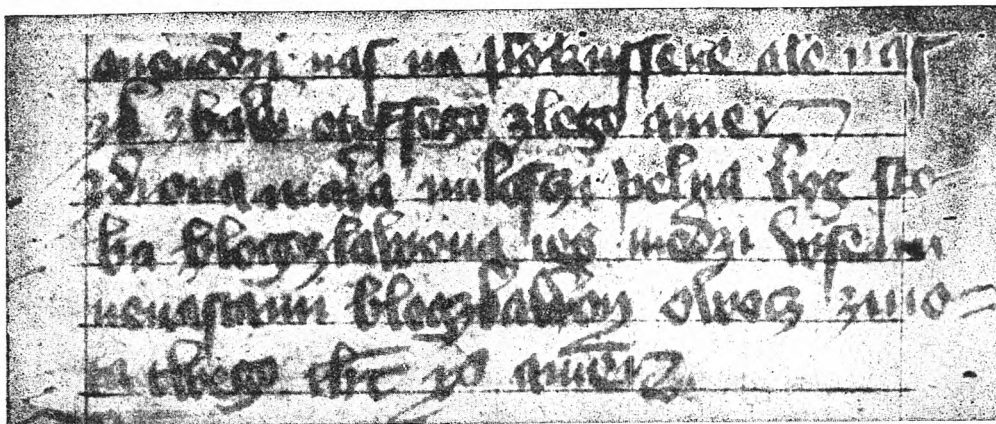 aneuedzi nas na pokussene ale nas
zb zbaw otessego zlego amen
zdroua maria miloſczi pelna bog sto
ba blogoslawiona ies medzi wsemi
neuastami blogoslawioni owocz ziuo
ta twego ihc xc amen